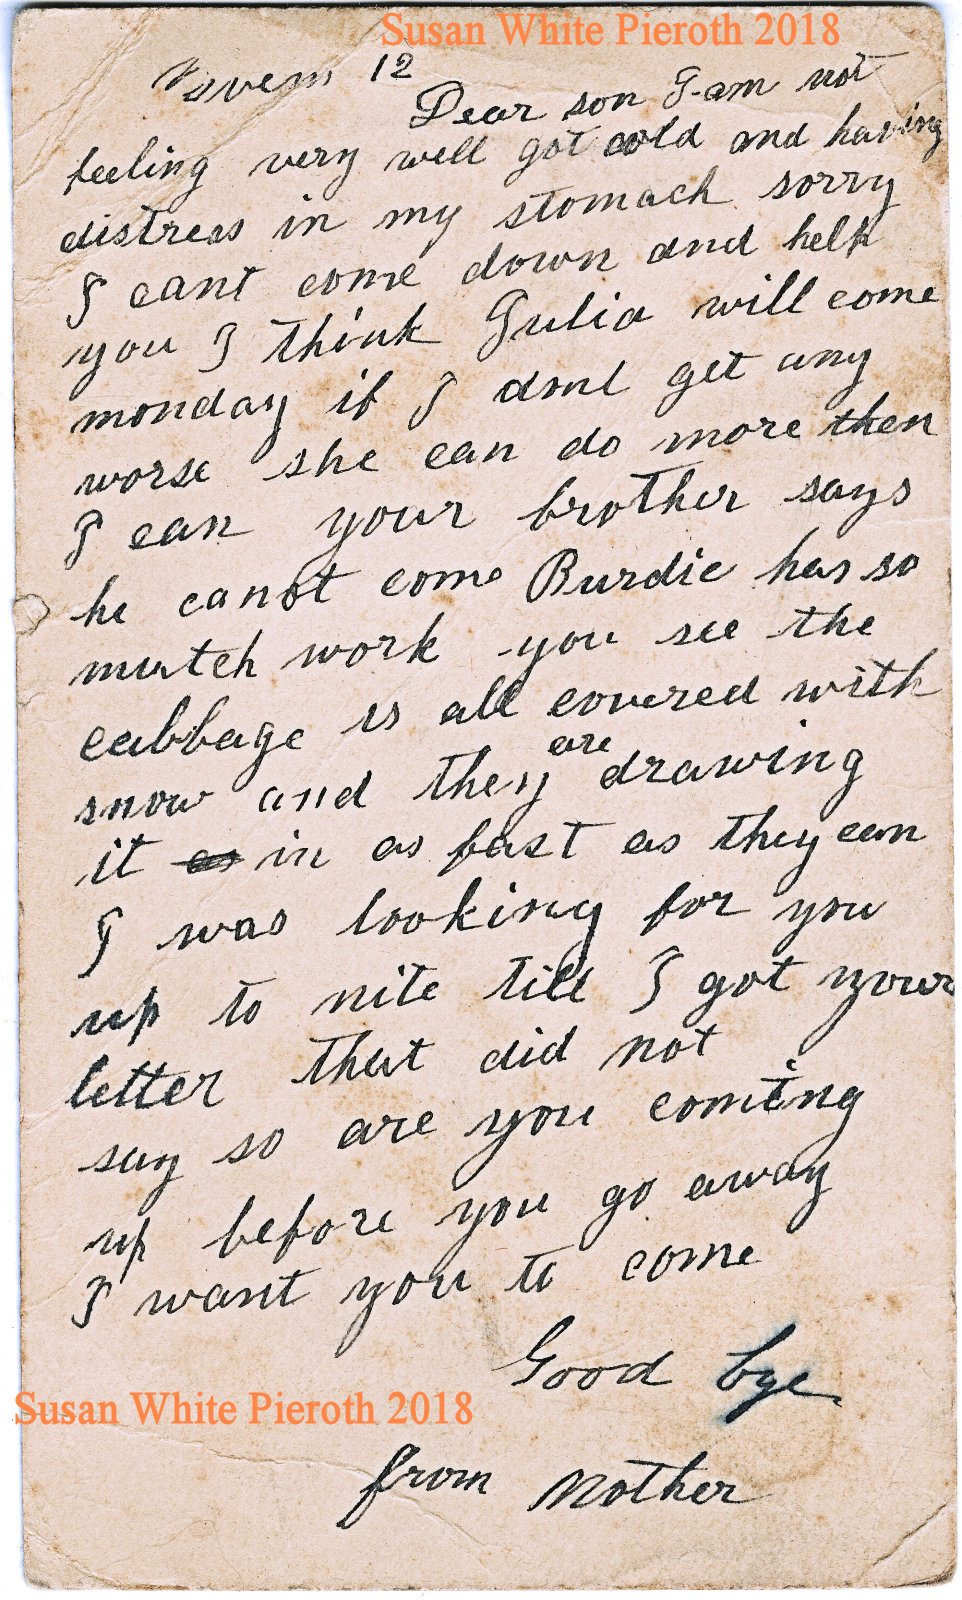 Susan White Pieroth 2018
Novem 12
Dear son I am not
feeling very well got cold and having
distress in my stomach sorry
I cant come down and help
you I think Julia will come
monday if I dont get any
worse she can do more then
I can your brother says
he canot come Burdie has so
mutch work you see the
cabbage is all covered with
snow and they are drawing
it as in as fast as they can
I was looking for you
up to nite till I got your
letter that did not
say so are you coming
up before you go away
I want you to come
Good bye
Susan White Pieroth 2018
from Mother